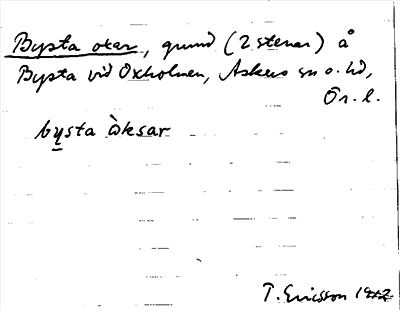 Bysta oxar, grund (2 stenar) å
Bysta vid Oxholmen, Askers sn o. hd,
Ör. l.
bysta ὼksar
T. Ericsson 1912